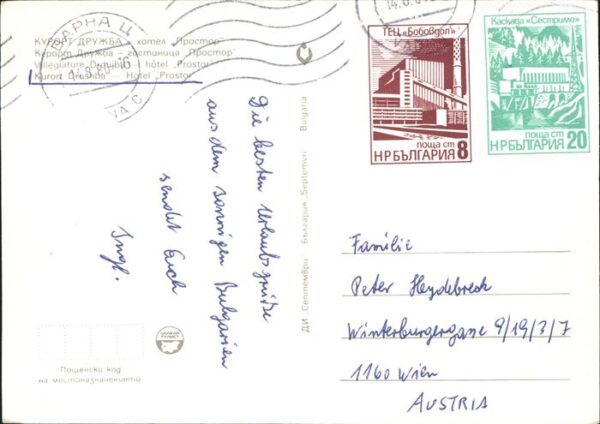 КУРОРТ ДРУЖБА – хотел „Простор"
Курорт Дружба – гостиница „Простор"
Villégiature Droujba – hôtel „Prostor"
Kurort Drushba – Hotel „Prostor"
ВАРНА Ц
14.6.80
VA C
14.6.8
ТЕЦ „Бобовдол"
поща ст
НРБЪЛГАРИЯ 8
Каскада „Сестримо"
поща ст
НРБЪЛГАРИЯ 20
Die besten Urlaubsgrüße
aus dem sonnigen Bulgarien
sendet Euch
Ingl.
ДИ „Септември" България „Septemvri" Bulgaria
Familie
Peter Heydebreck
Winterburgergasse 9/19/3/7
1160 Wien
AUSTRIA
БАЛКАН
ТУРИСТ
Пощенски код
на местоназначението